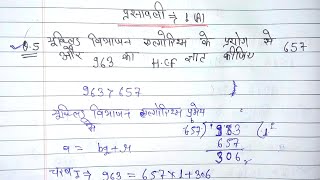 प्रश्नावली ⇒ 1 (A)
Q.5 यूक्लिड विभाजन एल्गोरिथ्म के प्रयोग से 657
और 963 का H.C.F ज्ञात कीजिए
963 > 657
यूक्लिड विभाजन एल्गोरिथ्म प्रमेय
से 657) 963 (1
a = bq + r 657
306
चरण I ⇒ 963 = 657 × 1 + 306